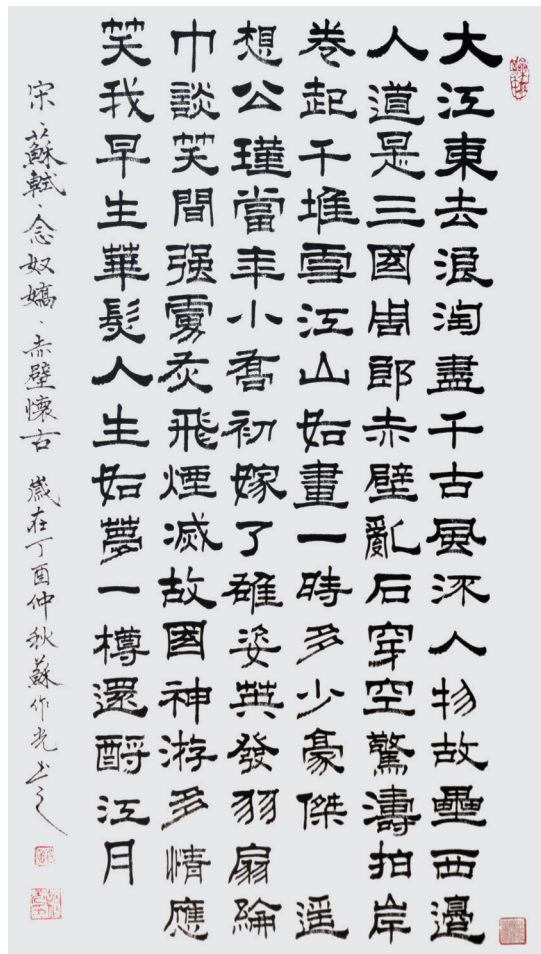 大江東去浪淘盡千古風流人物故壘西邊
人道是三國周郎赤壁亂石穿空驚濤拍岸
卷起千堆雪江山如畫一時多少豪傑 遥
想公瑾當年小喬初嫁了雄姿英發羽扇綸
巾談笑間强虜灰飛煙滅故國神游多情應
笑我早生華髮人生如夢一樽還酹江月
宋、蘇軾、念奴嬌、赤壁懷古 歲在丁酉仲秋蘇作光书之